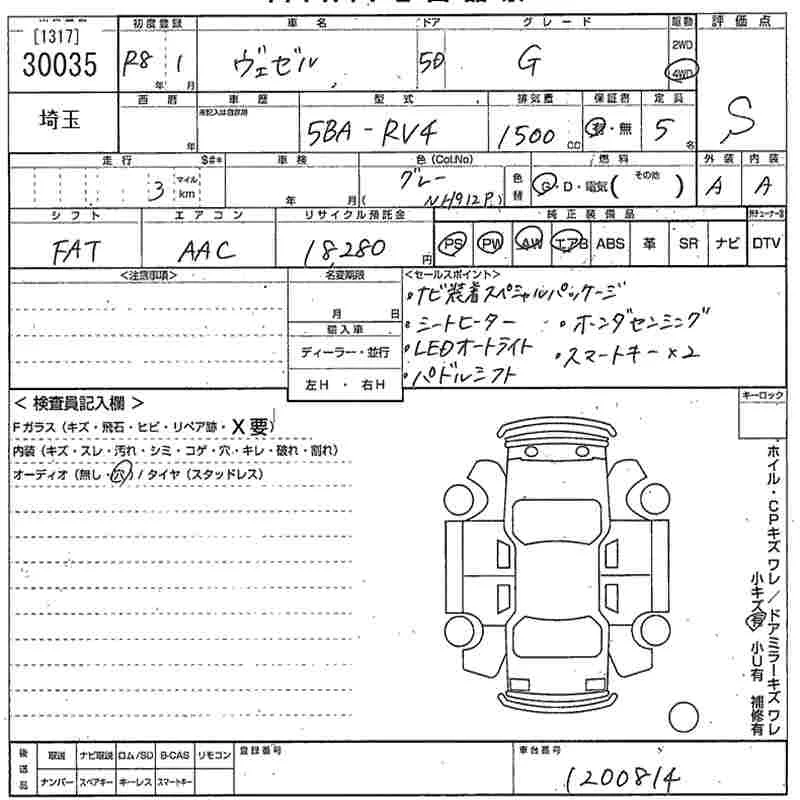 [1317]
30035
初度登録
R8 1
年 月
車名
ヴェゼル
ドア
5D
グレード
G
駆動
2WD
4WD
評価点
S
埼玉
西暦
年
車歴
未記入は自家用
型式
5BA-RV4
排気量
1500 CC
保証書
有・無
定員
5 名
走行
$#*
3
マイル
km
車検
年 月
色(Col.No)
グレー
(NH912P)
色替
燃料
G・D・電気( その他 )
外装
A
内装
A
シフト
FAT
エアコン
AAC
リサイクル預託金
18,280 円
純正装備品
PS PW AW エアB ABS 革 SR ナビ DTV
<注意事項>
名変期限
月 日
輸入車
ディーラー・並行
左H・右H
<セールスポイント>
・ナビ装着スペシャルパッケージ
・シートヒーター ・ホンダセンシング
・LEDオートライト ・スマートキー×2
・パドルシフト
<検査員記入欄>
Fガラス(キズ・飛石・ヒビ・リペア跡・X要)
内装(キズ・スレ・汚れ・シミ・コゲ・穴・キレ・破れ・割れ)
オーディオ(無し・穴)/タイヤ(スタッドレス)
キーロック
ホイル・CPキズワレ/ドアミラーキズワレ
小キズ有 小U有 補修有
後送品
取説 ナビ取説 ロム/SD B-CAS リモコン
ナンバー スペアキー キーレス スマートキー
登録番号
車台番号
1200814